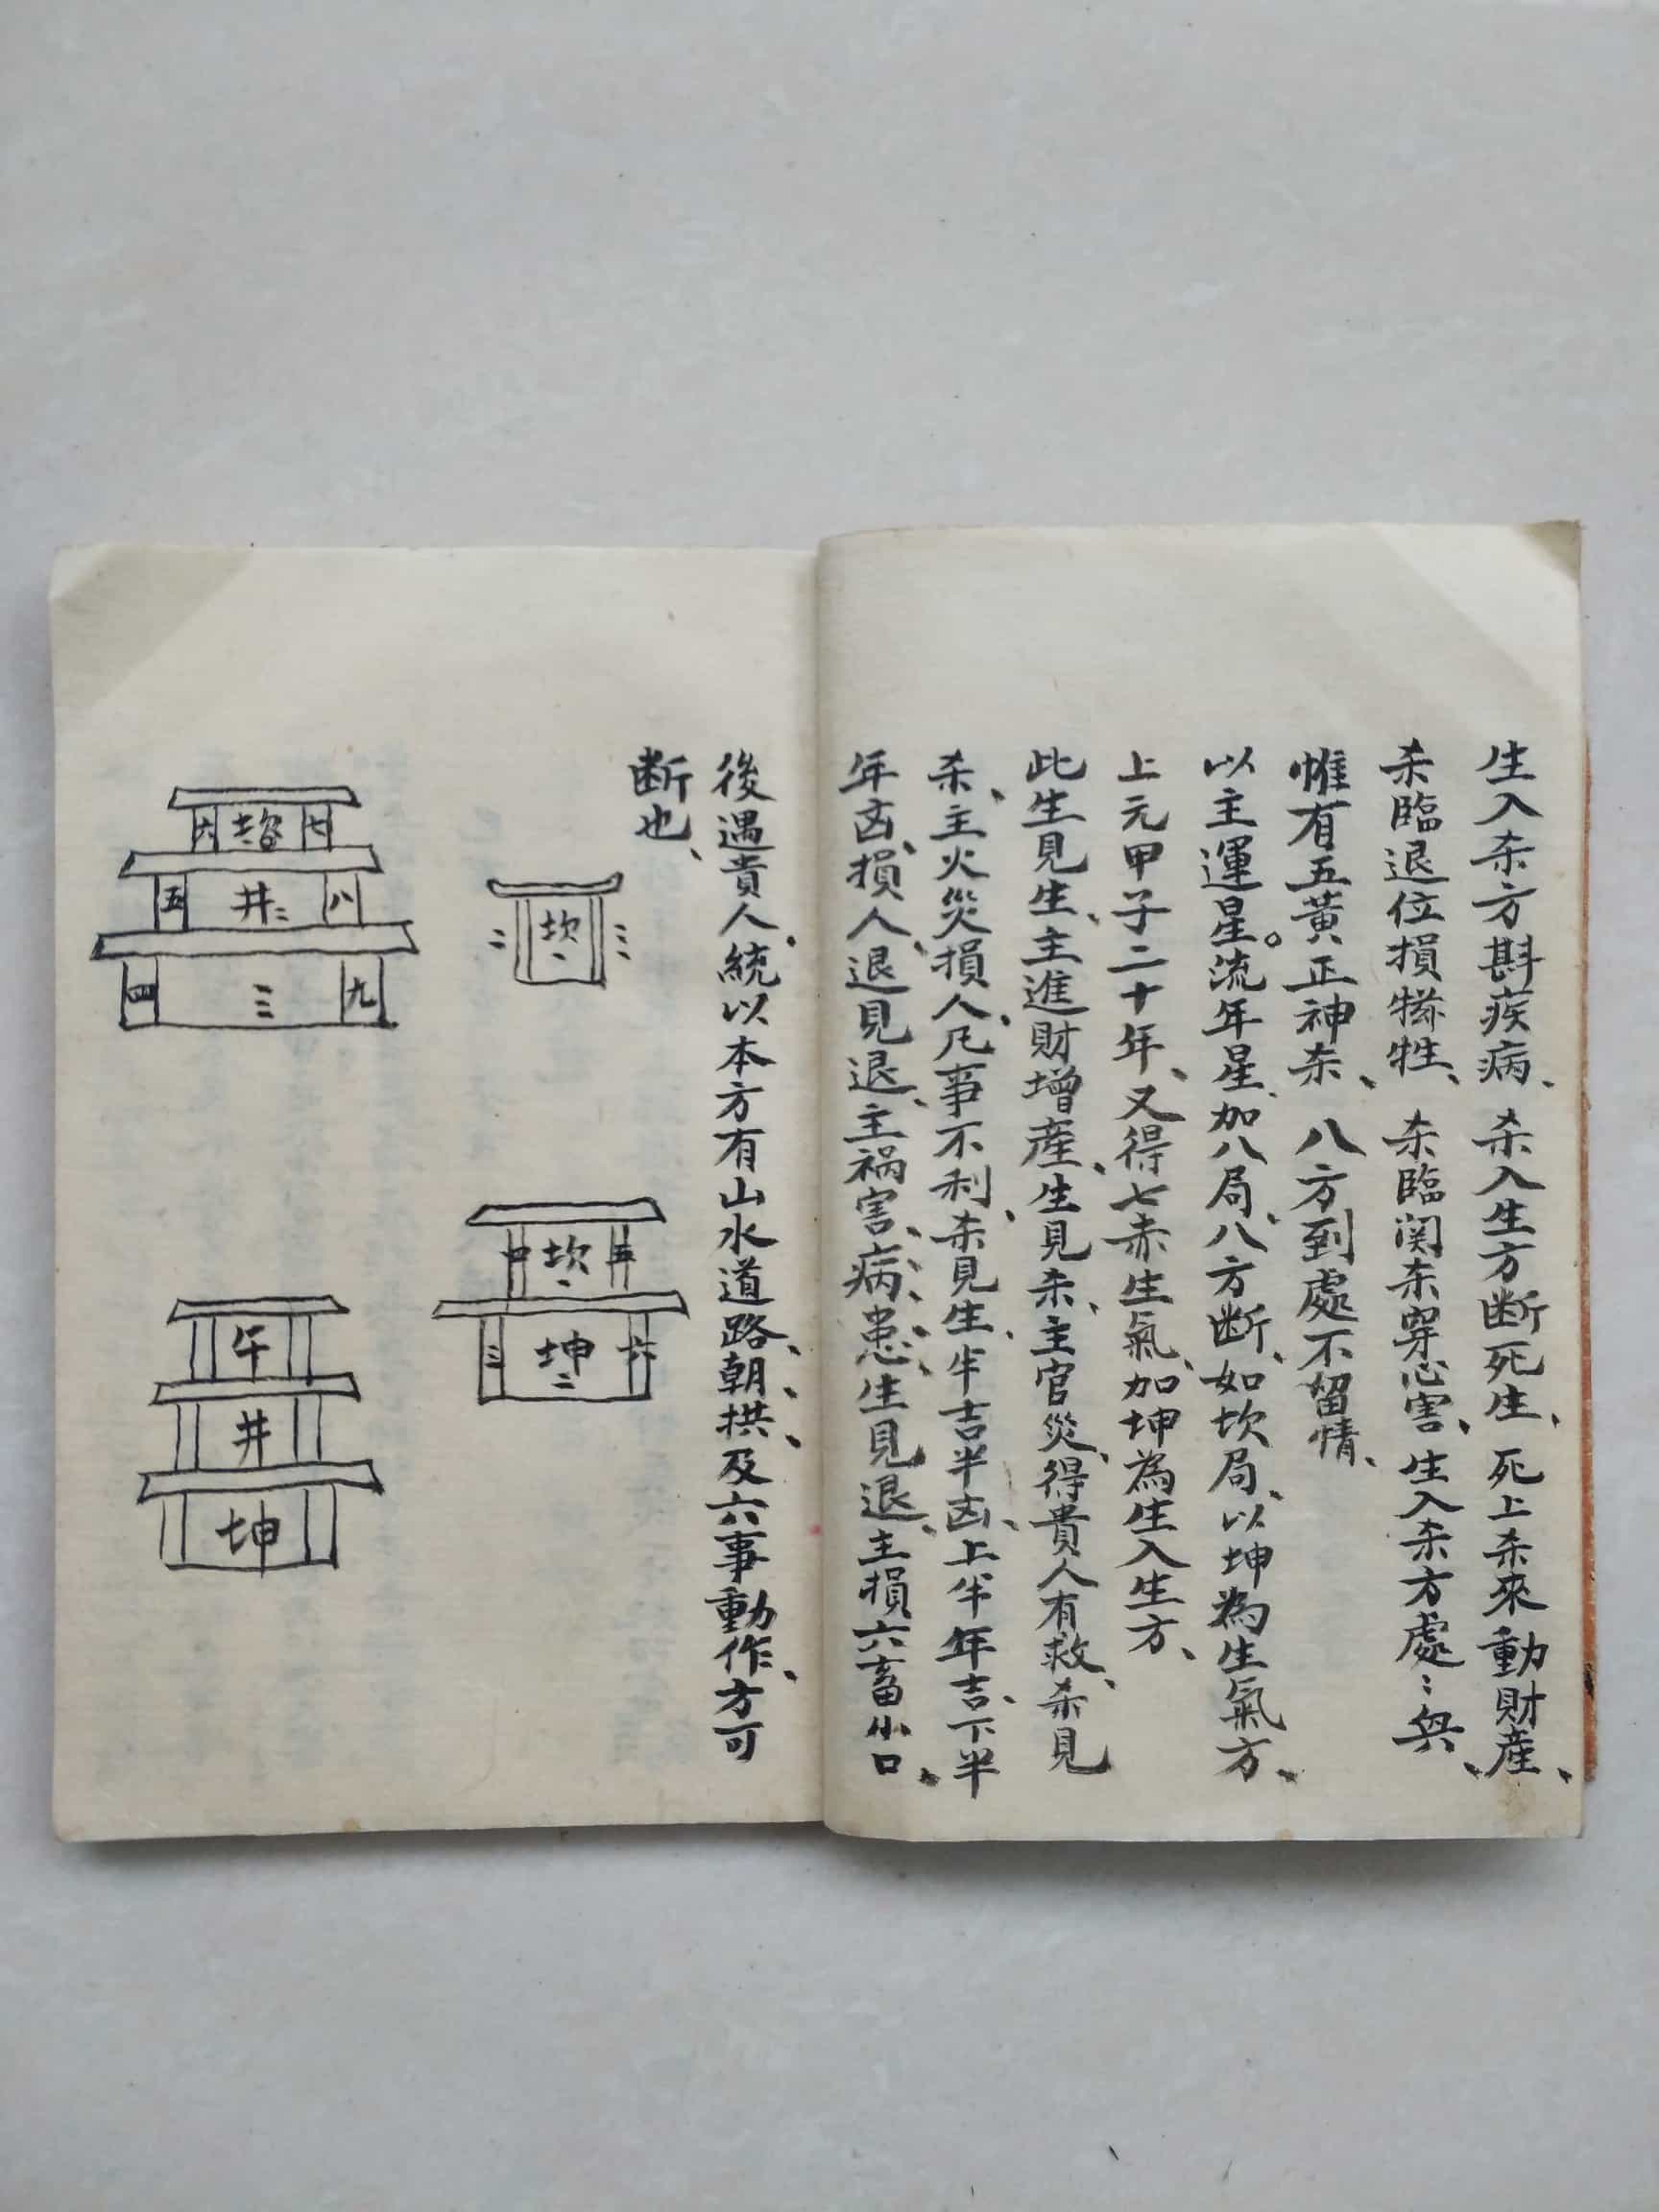 生入杀方斟疾病、杀入生方断死生、死上杀來動財産、
杀臨退位損犧牲、杀臨関杀穿心害、生入杀方處〻興、
惟有五黃正神杀、八方到處不留情、
以主運星。流年星、加八局、八方断、如坎局、以坤為生氣方、
上元甲子二十年、又得七赤生氣、加坤為生入生方、
此生見生、主進財増産、生見杀、主官災、得貴人有救、杀見
杀、主火災損人、凡事不利、杀見生、半吉半凶、上半年吉、下半
年凶、損人、退見退、主禍害、病患、生見退、主損六畜小口、
後遇貴人、統以本方有山水道路、朝拱、及六事動作、方可
断也、
坎一
二 三
四 坎一 五
三 坤二 六
六 七
五 井二 八
四 三 九
午
井
坤